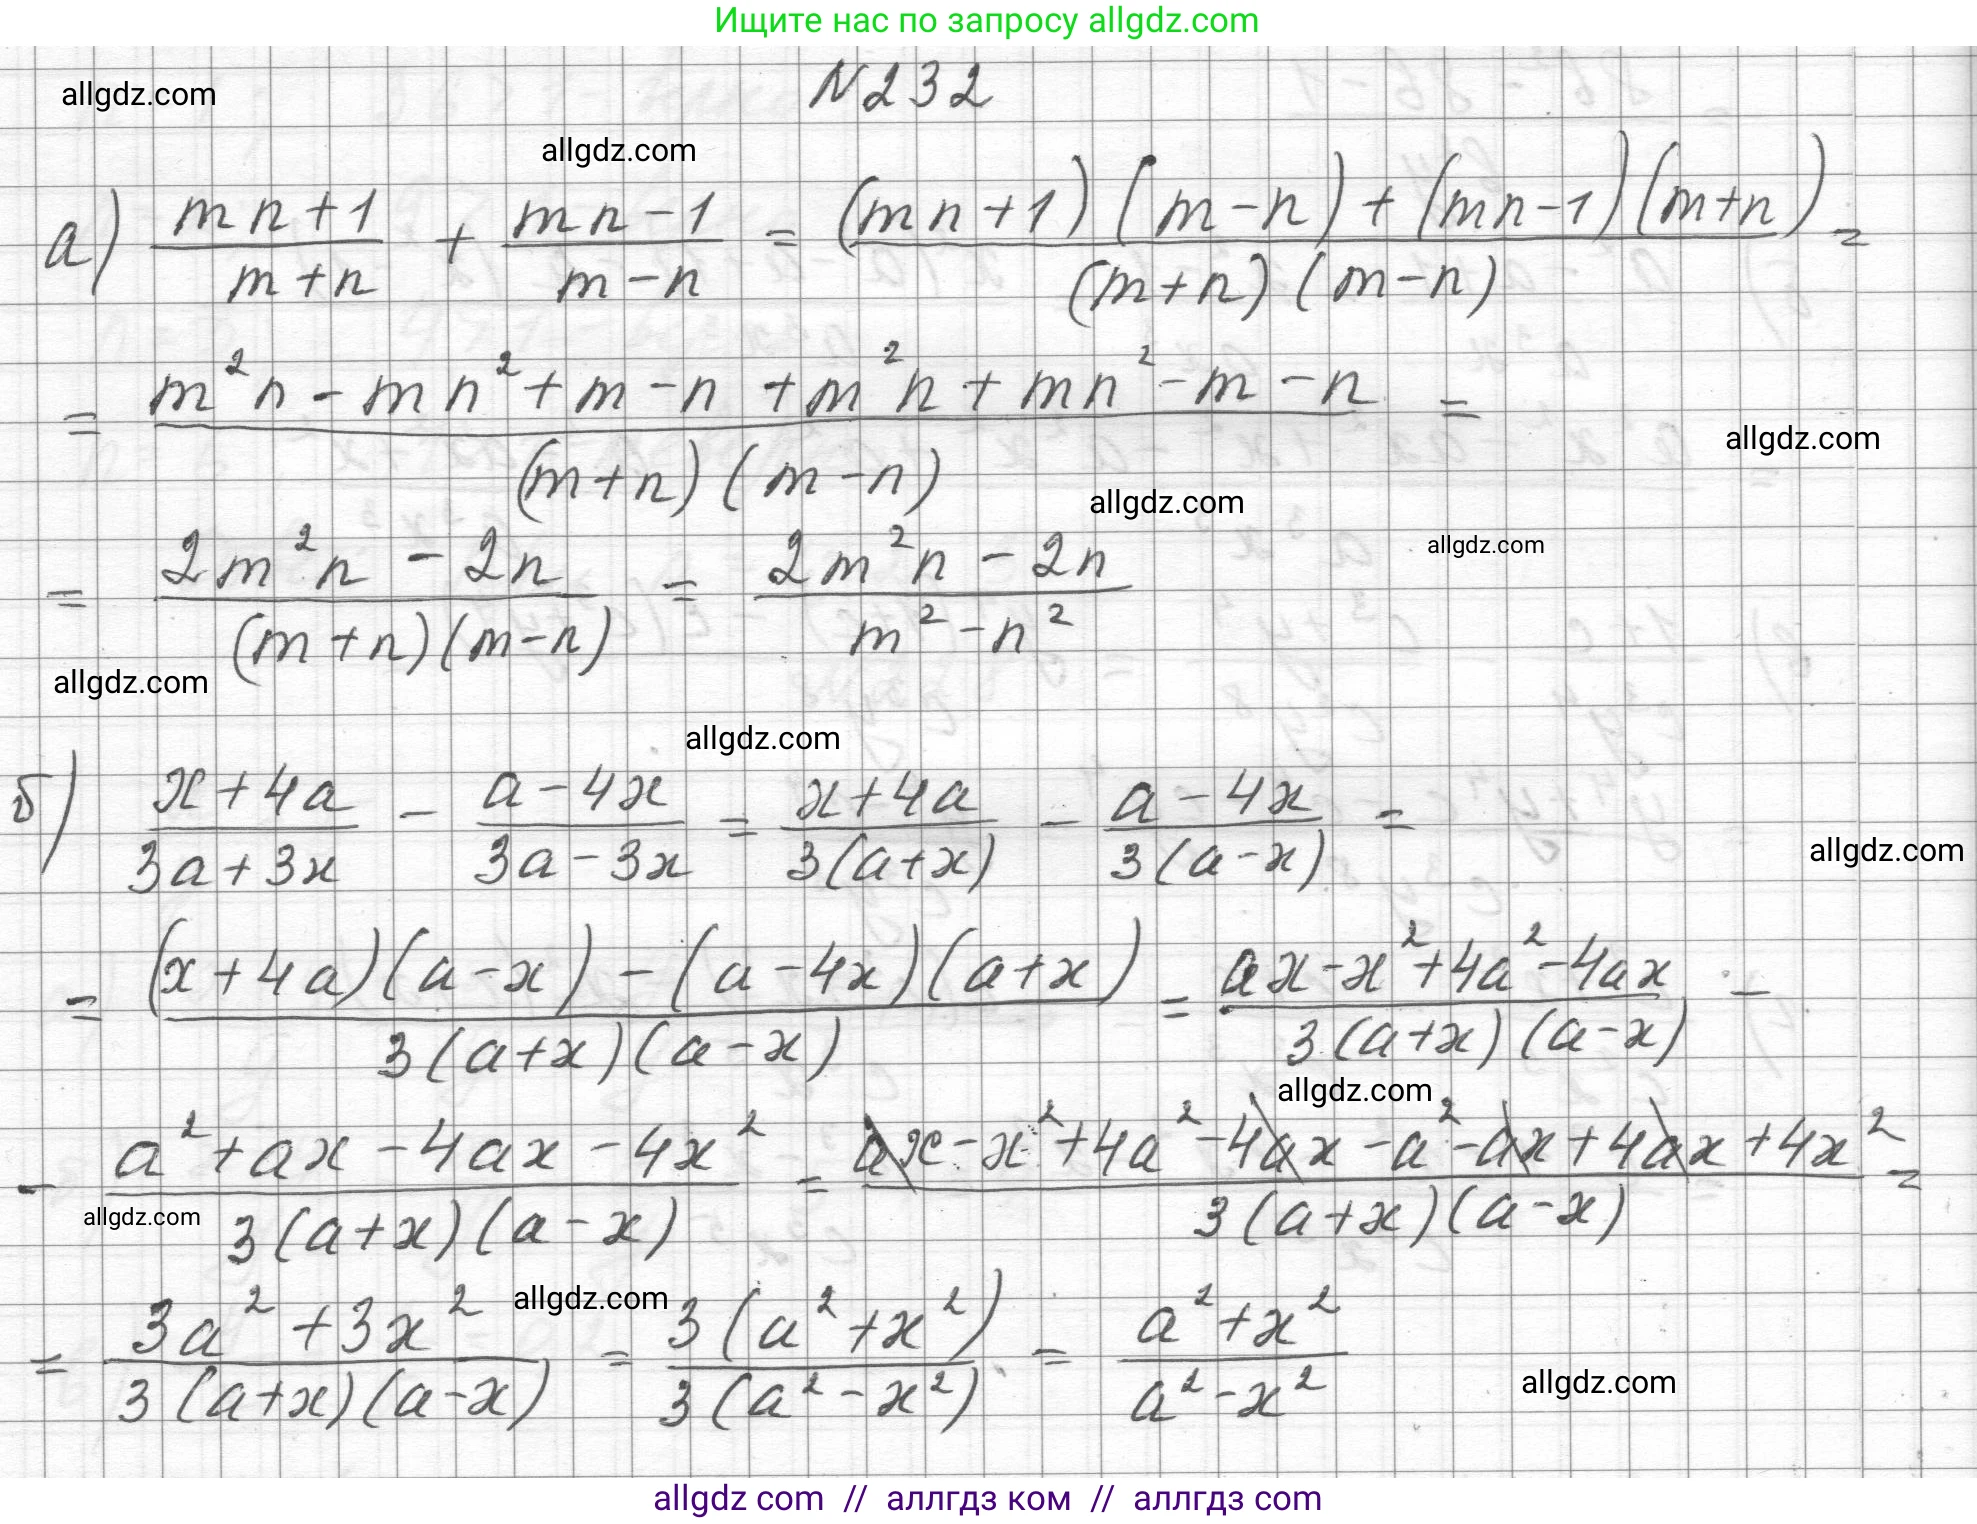 Ищите нас по запросу allgdz.com
№232
allgdz.com
allgdz.com
а) \frac{mn+1}{m+n} + \frac{mn-1}{m-n} = \frac{(mn+1)(m-n)+(mn-1)(m+n)}{(m+n)(m-n)} =
= \frac{m^2n - mn^2 + m - n + m^2n + mn^2 - m - n}{(m+n)(m-n)} =
allgdz.com
allgdz.com
allgdz.com
= \frac{2m^2n - 2n}{(m+n)(m-n)} = \frac{2m^2n - 2n}{m^2 - n^2}
allgdz.com
allgdz.com
б) \frac{x+4a}{3a+3x} - \frac{a-4x}{3a-3x} = \frac{x+4a}{3(a+x)} - \frac{a-4x}{3(a-x)} =
allgdz.com
= \frac{(x+4a)(a-x)-(a-4x)(a+x)}{3(a+x)(a-x)} = \frac{ax-x^2+4a^2-4ax}{3(a+x)(a-x)} -
allgdz.com
- \frac{a^2+ax-4ax-4x^2}{3(a+x)(a-x)} = \frac{ax-x^2+4a^2-4ax-a^2-ax+4ax+4x^2}{3(a+x)(a-x)} =
allgdz.com
allgdz.com
= \frac{3a^2+3x^2}{3(a+x)(a-x)} = \frac{3(a^2+x^2)}{3(a^2-x^2)} = \frac{a^2+x^2}{a^2-x^2}
allgdz.com
allgdz com // аллгдз ком // аллгдз com